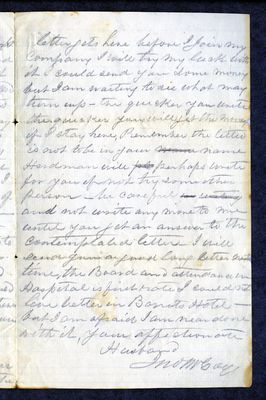 letter gets here before I join my
Company I will try my luck with
it I could send you some money
but I am waiting to see what may
turn up - the quicker you write
the quicker you will get the money
if I stay here, Remember the letter
is not to be in your name
Hardman will perhaps write
for you if not try some other
person - be careful
and not write any more to me
until you get an answer to the
Contemplated letter I will
send you a good long letter
time, the Board and attendance in
Hospital is first rate I could not
live better in Hotel -
but I am afraid I am near done
with it, Your affectionate
Husband
Jno M Coy